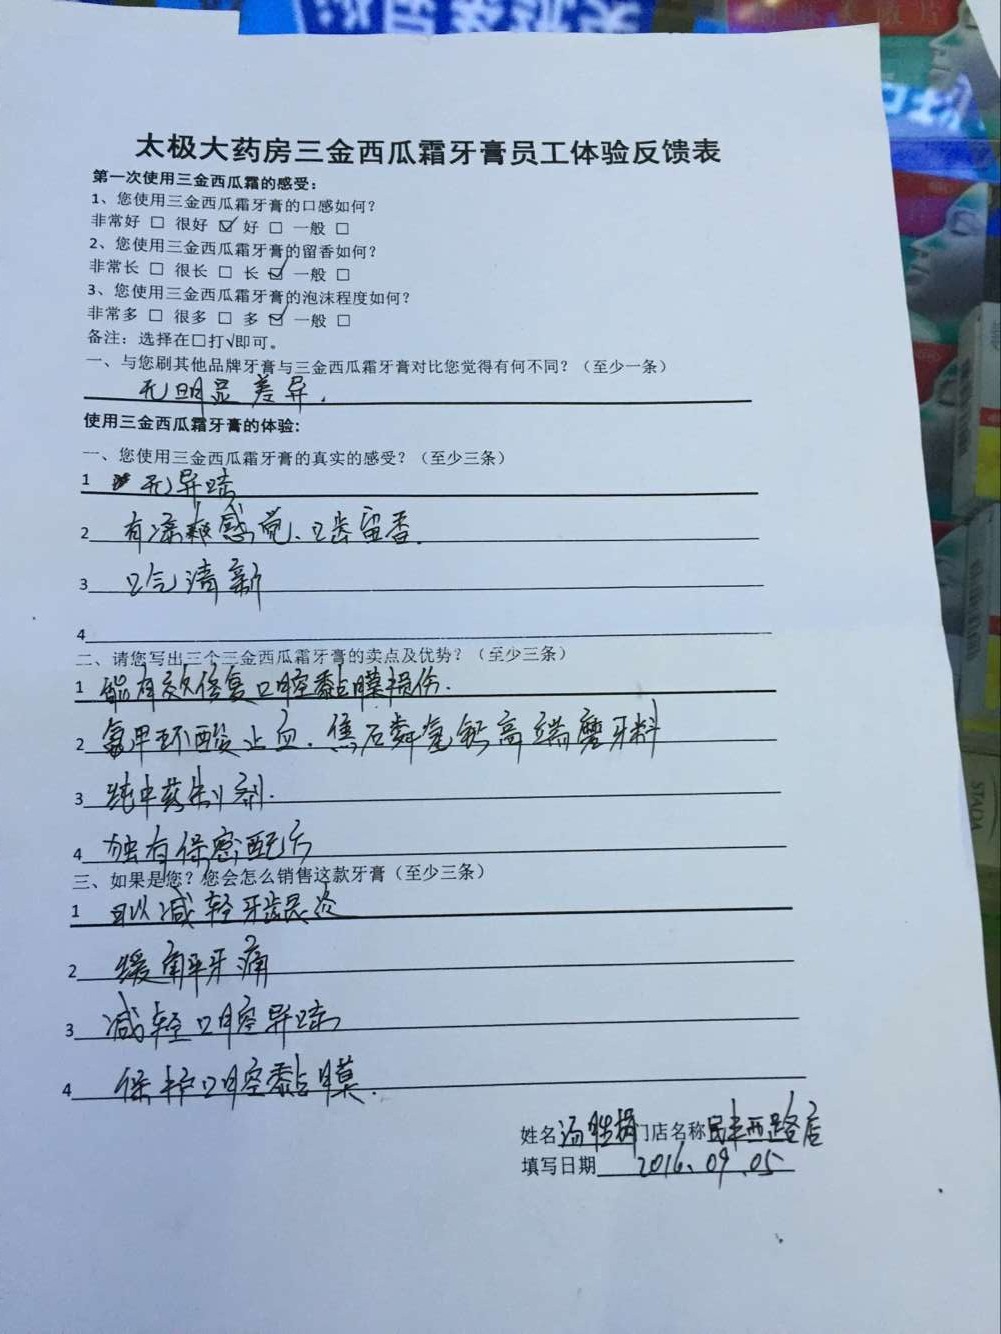 太极大药房三金西瓜霜牙膏员工体验反馈表
第一次使用三金西瓜霜的感受：
1、您使用三金西瓜霜牙膏的口感如何？
非常好 □ 很好 ☑ 好 □ 一般 □
2、您使用三金西瓜霜牙膏的留香如何？
非常长 □ 很长 □ 长 ☑ 一般 □
3、您使用三金西瓜霜牙膏的泡沫程度如何？
非常多 □ 很多 □ 多 ☑ 一般 □
备注：选择在□打√即可。
一、与您刷其他品牌牙膏与三金西瓜霜牙膏对比您觉得有何不同？（至少一条）
无明显差异.
使用三金西瓜霜牙膏的体验:
一、您使用三金西瓜霜牙膏的真实的感受？（至少三条）
1 无异味
2 有凉爽感觉、口齿留香.
3 口气清新
4
二、请您写出三个三金西瓜霜牙膏的卖点及优势？（至少三条）
1 能有效修复口腔黏膜损伤.
2 氨甲环酸止血.焦石粦氢钙高端磨牙料
3 纯中药制剂.
4 独有保密配方
三、如果是您？您会怎么销售这款牙膏（至少三条）
1 可以减轻牙龈炎
2 缓解牙痛
3 减轻口腔异味
4 保护口腔黏膜.
姓名 汤 门店名称 民丰西路店
填写日期 2016.09.05
STADA